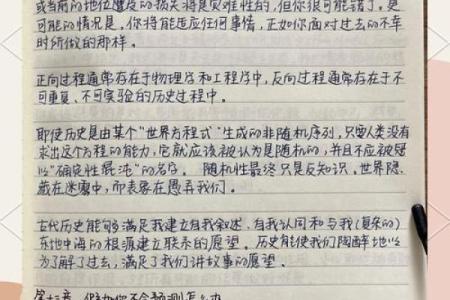 或当前的地位蹙及的损失将是灾难性的,但你很可能错了。更
可能的情况是,你将能适应任何事情,正如你面对过去的不幸
时所做的那样。
正向过程通常存在于物理学和工程学中,反向过程通常存在于不
可重复、不可实验的历史过程中。
即使历史是由某个“世界方程式”生成的非随机序列,只要人类没有
求出这个方程的能力,它就应该被认为是随机的,并且不应被冠
以“确定性混沌”的名字。 随机性最终只是反知识。世界隐
藏在迷雾中,而表象在愚弄我们。
古代历史能够满足我建立自我叙述、自我认同和与我(复杂的)
东地中海的根源建立联系的愿望。历史能使我们陶醉地以
为了解了过去,满足了我们讲故事的愿望。